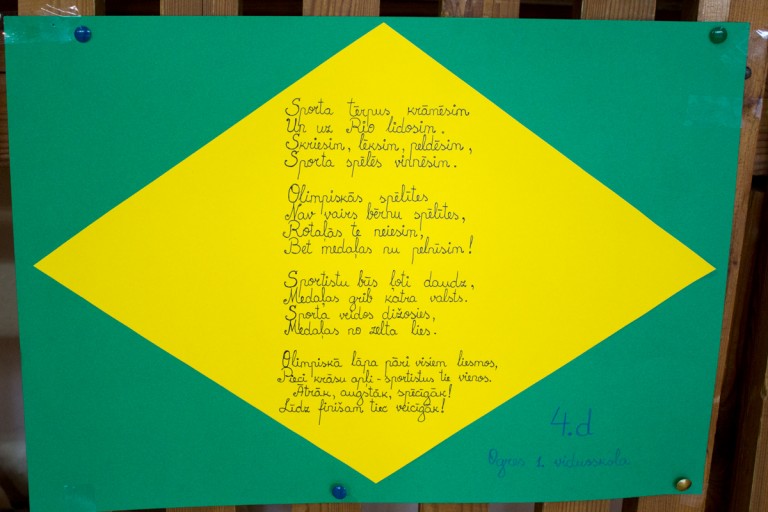 Sporta tērpus krāmēsim
Un uz Rio lidosim.
Skriesim, lēksim, peldēsim,
Sporta spēlēs vinnēsim.
Olimpiskās spēlītes
Nav vairs bērnu spēlītes,
Rotaļās te neiesim,
Bet medaļas nu pelnīsim!
Sportistu būs ļoti daudz,
Medaļas grib katra valsts.
Sporta veidos dižosies,
Medaļas no zelta lies.
Olimpiskā lāpa pāri visiem liesmos,
Pieci krāsu apļi - sportistus tie vienos.
Ātrāk, augstāk, spēcīgāk!
Līdz finišam tiec veicīgāk!
4.d
Ogres 1. vidusskola